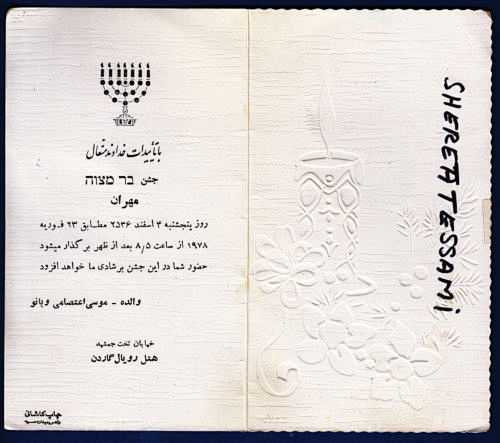 با تأییدات خداوند متعال
جشن בר מצוה
مهران
روز پنجشنبه ۴ اسفند ۲۵۳۶ مطابق ۲۳ فوریه
۱۹۷۸ از ساعت ۸/۵ بعد از ظهر برگذار میشود
حضور شما در این جشن بر شادی ما خواهد افزود
والده - موسی اعتصامی و بانو
خیابان تخت جمشید
هتل رویال گاردن
چاپ کاشانی
SHEREETESSAMI